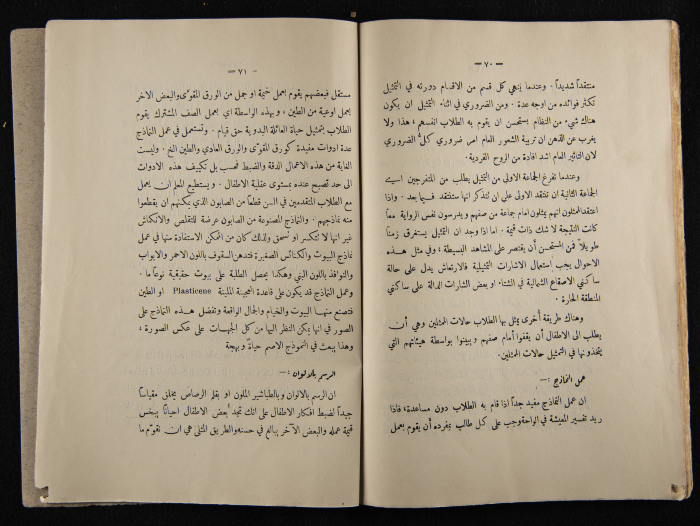 — ٧٠ —
منتقداً شديداً . وعندما ينهي كل قسم من الاقسام دورته في التمثيل
تكثر فوائده من اوجه عدة . ومن الضروري في اثناء التمثيل ان يكون
هناك شيء من النظام يستحسن ان يقوم به الطلاب انفسهم ، هذا ولا
يغرب عن الذهن ان تربية الشعور العام امر ضروري كل الضروري
لان التاثير العام اشد افادة من الروح الفردية .
وعندما تفرغ الجماعة الاولى من التمثيل يطلب من المتفرجين اسيے
الجماعة الثانية ان تنتقد الاولى على ان تتذكر انها ستنتقد نفسها بعد . واذا
اعتقد الممثلون انهم يمثلون امام جماعة من صفهم ويدرسون نفس الرواية معاً
كانت النتيجة لا شك ذات قيمة . اما اذا وجد ان التمثيل يستغرق زمناً
طويلاً فمن المستحسن ان يقتصر على المشاهد البسيطة ، وفي مثل هذه
الاحوال يجب استعمال الاشارات التمثيلية فالارتعاش يدل على حالة
ساكني الاصقاع الشمالية في الشتاء او بعض الشارات الدالة على ساكني
المنطقة الحارة .
وهناك طريقة أخرى يمثل بها الطلاب حالات الممثلين وهي أن
يطلب الى الاطفال أن يقفوا أمام صفهم ويبينوا بواسطة هيئاتهم التي
يتخذونها في التمثيل حالات الممثلين .
عمل النماذج :—
ان عمل النماذج مفيد جداً اذا قام به الطلاب دون مساعدة ، فاذا
ريد تفسير المعيشة في الواحة وجب على كل طالب بمفرده أن يقوم بعمل
— ٧١ —
مستقل فبعضهم يقوم بعمل خيمة او جمل من الورق المقوّى والبعض الاخر
يعمل اوعية من الطين ، وبهذه الواسطة اي بعمل الصف المشترك يقوم
الطلاب بتمثيل حياة العائلة البدوية حق قيام . وتستعمل في عمل النماذج
عدة ادوات مفيدة كورق المقوّى والورق العادي والطين الخ . وليست
الغاية من هذه الاعمال الدقة والضبط فحسب بل تكييف هذه الادوات
الى حد تصبح عنده بمستوى عقلية الاطفال . ويستطيع المعلم ان يعمل
مع الطلاب المتقدمين في السن قطعاً من الصابون الذي يمكنهم ان يقطعوا
منه نماذجهم . والنماذج المصنوعة من الصابون عرضة للتقلص والانكماش
غير انها لا تنكسر او تسحق ولذلك كان من الممكن الاستفادة منها في عمل
نماذج البيوت والكنائس الصغيرة فتدهن السقوف باللون الاحمر والابواب
والنوافذ باللون البني وهكذا يحصل الطلبة على بيوت حقيقية نوعاً ما .
وعمل النماذج قد يكون على قاعدة العجينة المليئة Plasticene او الطين
فتصنع منها البيوت والخيام والجمال الواقعة وتفضل هذه النماذج على
الصور في انها يمكن النظر اليها من كل الجهات على عكس الصورة ،
وهذا يبعث في النموذج الاصم حياة وبهجة
الرسم بالالوان :—
ان الرسم بالالوان وبالطباشير الملون او بقلم الرصاص يخلق مقياساً
جيداً لضبط افكار الاطفال على انك تجد بعض الاطفال احياناً يبخس
قيمة عمله والبعض الآخر يبالغ في حسنه والطريق المثلى هي ان تقوّم ما